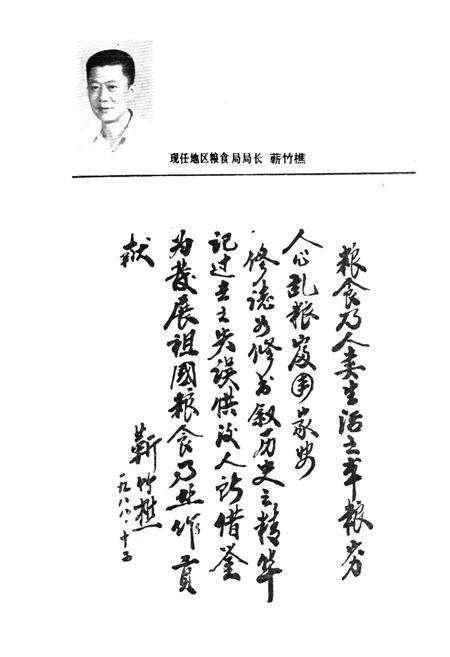 现任地区粮食局局长 蕲竹樵
粮食乃人类生活之本粮劣
人心乱粮家安
修志如修书叙历史之精华
记过去之失误供后人所借鉴
为发展祖国粮食乃业作贡
献
蕲竹樵
一九八八.十二